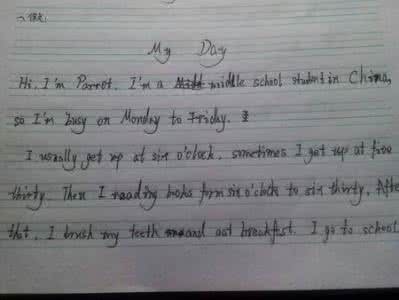 My Day
Hi, I'm Parrot. I'm a middle school student in China,
so I'm busy on Monday to Friday.
I usually get up at six o'clock, sometimes I get up at five
thirty. Then I reading books form six o'clock to six thirty. Afte
that, I brush my teeth and eat breakfast. I go to school